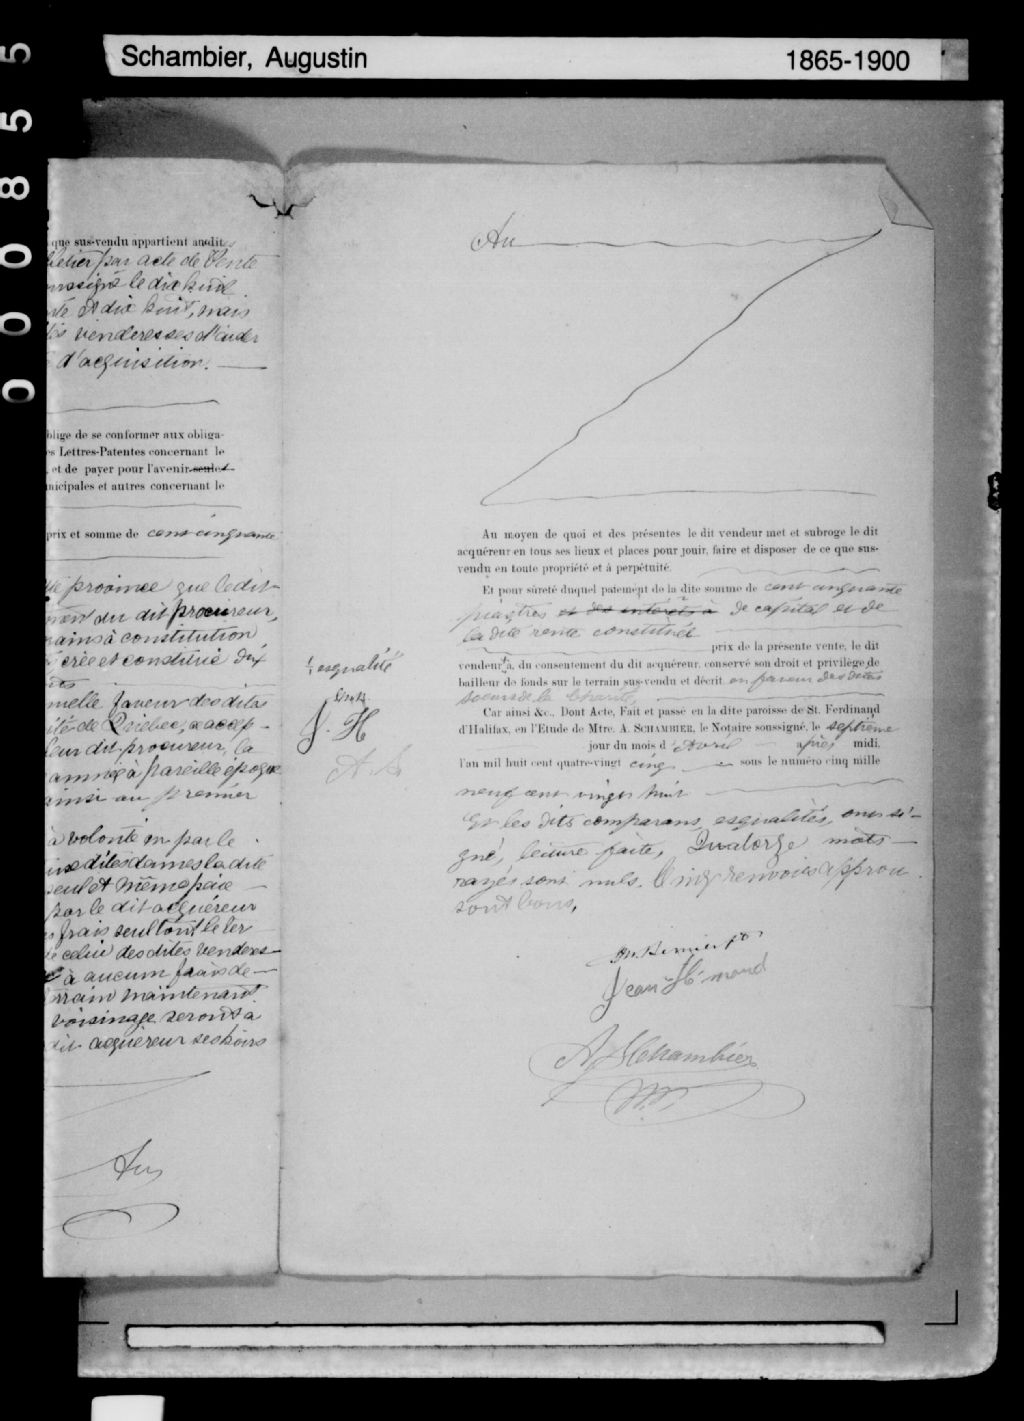 Schambier, Augustin 1865-1900
000855
que sus-vendu appartient audit
par acte de Vente
le dix huit
et dix huit, mais
venderesses d'aider
d'acquisition.
blige de se conformer aux obliga-
s Lettres-Patentes concernant le
et de payer pour l'avenir seules
nicipales et autres concernant le
prix et somme de cent cinquante
province que le dit
du dit procureur,
à constitution
créé et constitué dix
melle faveur des dites
de Québec, a accep-
leur dit procureur, la
année à pareille époque
ainsi au premier
à volonté en par le
dites dames la dite
seul et même paie
par le dit acquéreur
frais seul tout le
celui des dites venderes-
à aucun frais de
terrain maintenant
voisinage seront à
dit acquéreur ses hoirs
Au
Au moyen de quoi et des présentes le dit vendeur met et subroge le dit
acquéreur en tous ses lieux et places pour jouir, faire et disposer de ce que sus-
vendu en toute propriété et à perpétuité.
Et pour sûreté duquel paiement de la dite somme de cent cinquante
piastres et des intérets à de capital et de
la dite rente constituée
prix de la présente vente, le dit
vendeur a, du consentement du dit acquéreur, conservé son droit et privilège de
bailleur de fonds sur le terrain sus-vendu et décrit en faveur des dites
soeurs de la Charité,
Car ainsi &c., Dont Acte, Fait et passé en la dite paroisse de St. Ferdinand
d'Halifax, en l'Etude de Mtre. A. SCHAMBIER, le Notaire soussigné, le septième
jour du mois d'Avril après midi,
l'an mil huit cent quatre-vingt cinq sous le numéro cinq mille
neuf cent vingt huit
Et les dits comparans, esqualités, ont si-
gné, lecture faite, Quatorze mots
rayés sont nuls. Cinq renvois approu
sont bons,
esqualité
J. H
A. S.
Jean Hémond
A Schambier
N.P.